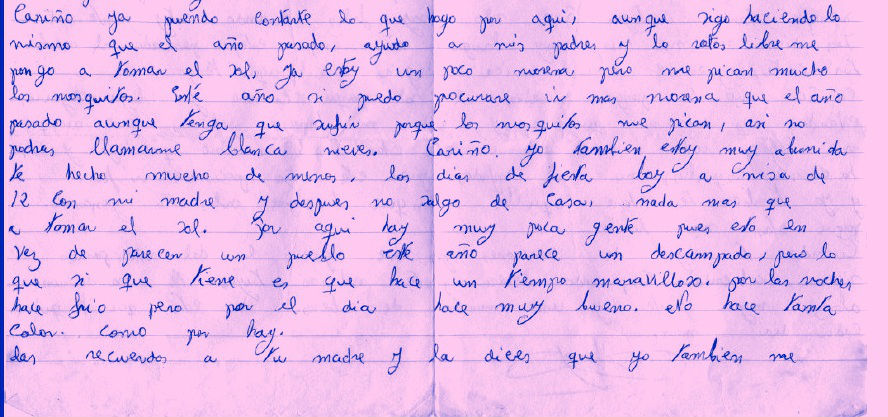 Cariño ya puendo contarte lo que hago por aqui, aunque sigo haciendo lo
mismo que el año pasado, ayudo a mis padres y lo ratos libre me
pongo a tomar el sol, ya estoy un poco morena pero me pican mucho
los mosquitos. Esté año si puedo procurare ir mas morena que el año
pasado aunque tenga que sufrir porque los mosquitos me pican, asi no
podras llamarme blanca nieves. Cariño. yo tambien estoy muy aburrida
te hecho mucho de menos, los dias de fiesta boy a misa de
12 con mi madre y despues no salgo de casa, nada mas que
a tomar el sol. Por aqui hay muy poca gente pues esto en
vez de parecer un pueblo este año parece un descampado, pero lo
que si que tiene es que hace un tiempo maravilloso. por las noches
hace frio pero por el dia hace muy bueno. No hace tanta
calor. como por hay.
das recuerdos a tu madre y la dices que yo tambien me